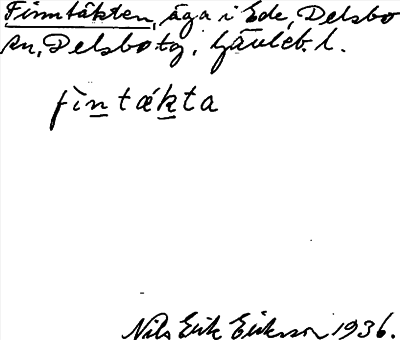 Finntäkten, äga i Ede, Delsbo
sn, Delsbo tg, Gävleb. l.
fìntákta
Nils Erik Eriksson 1936.